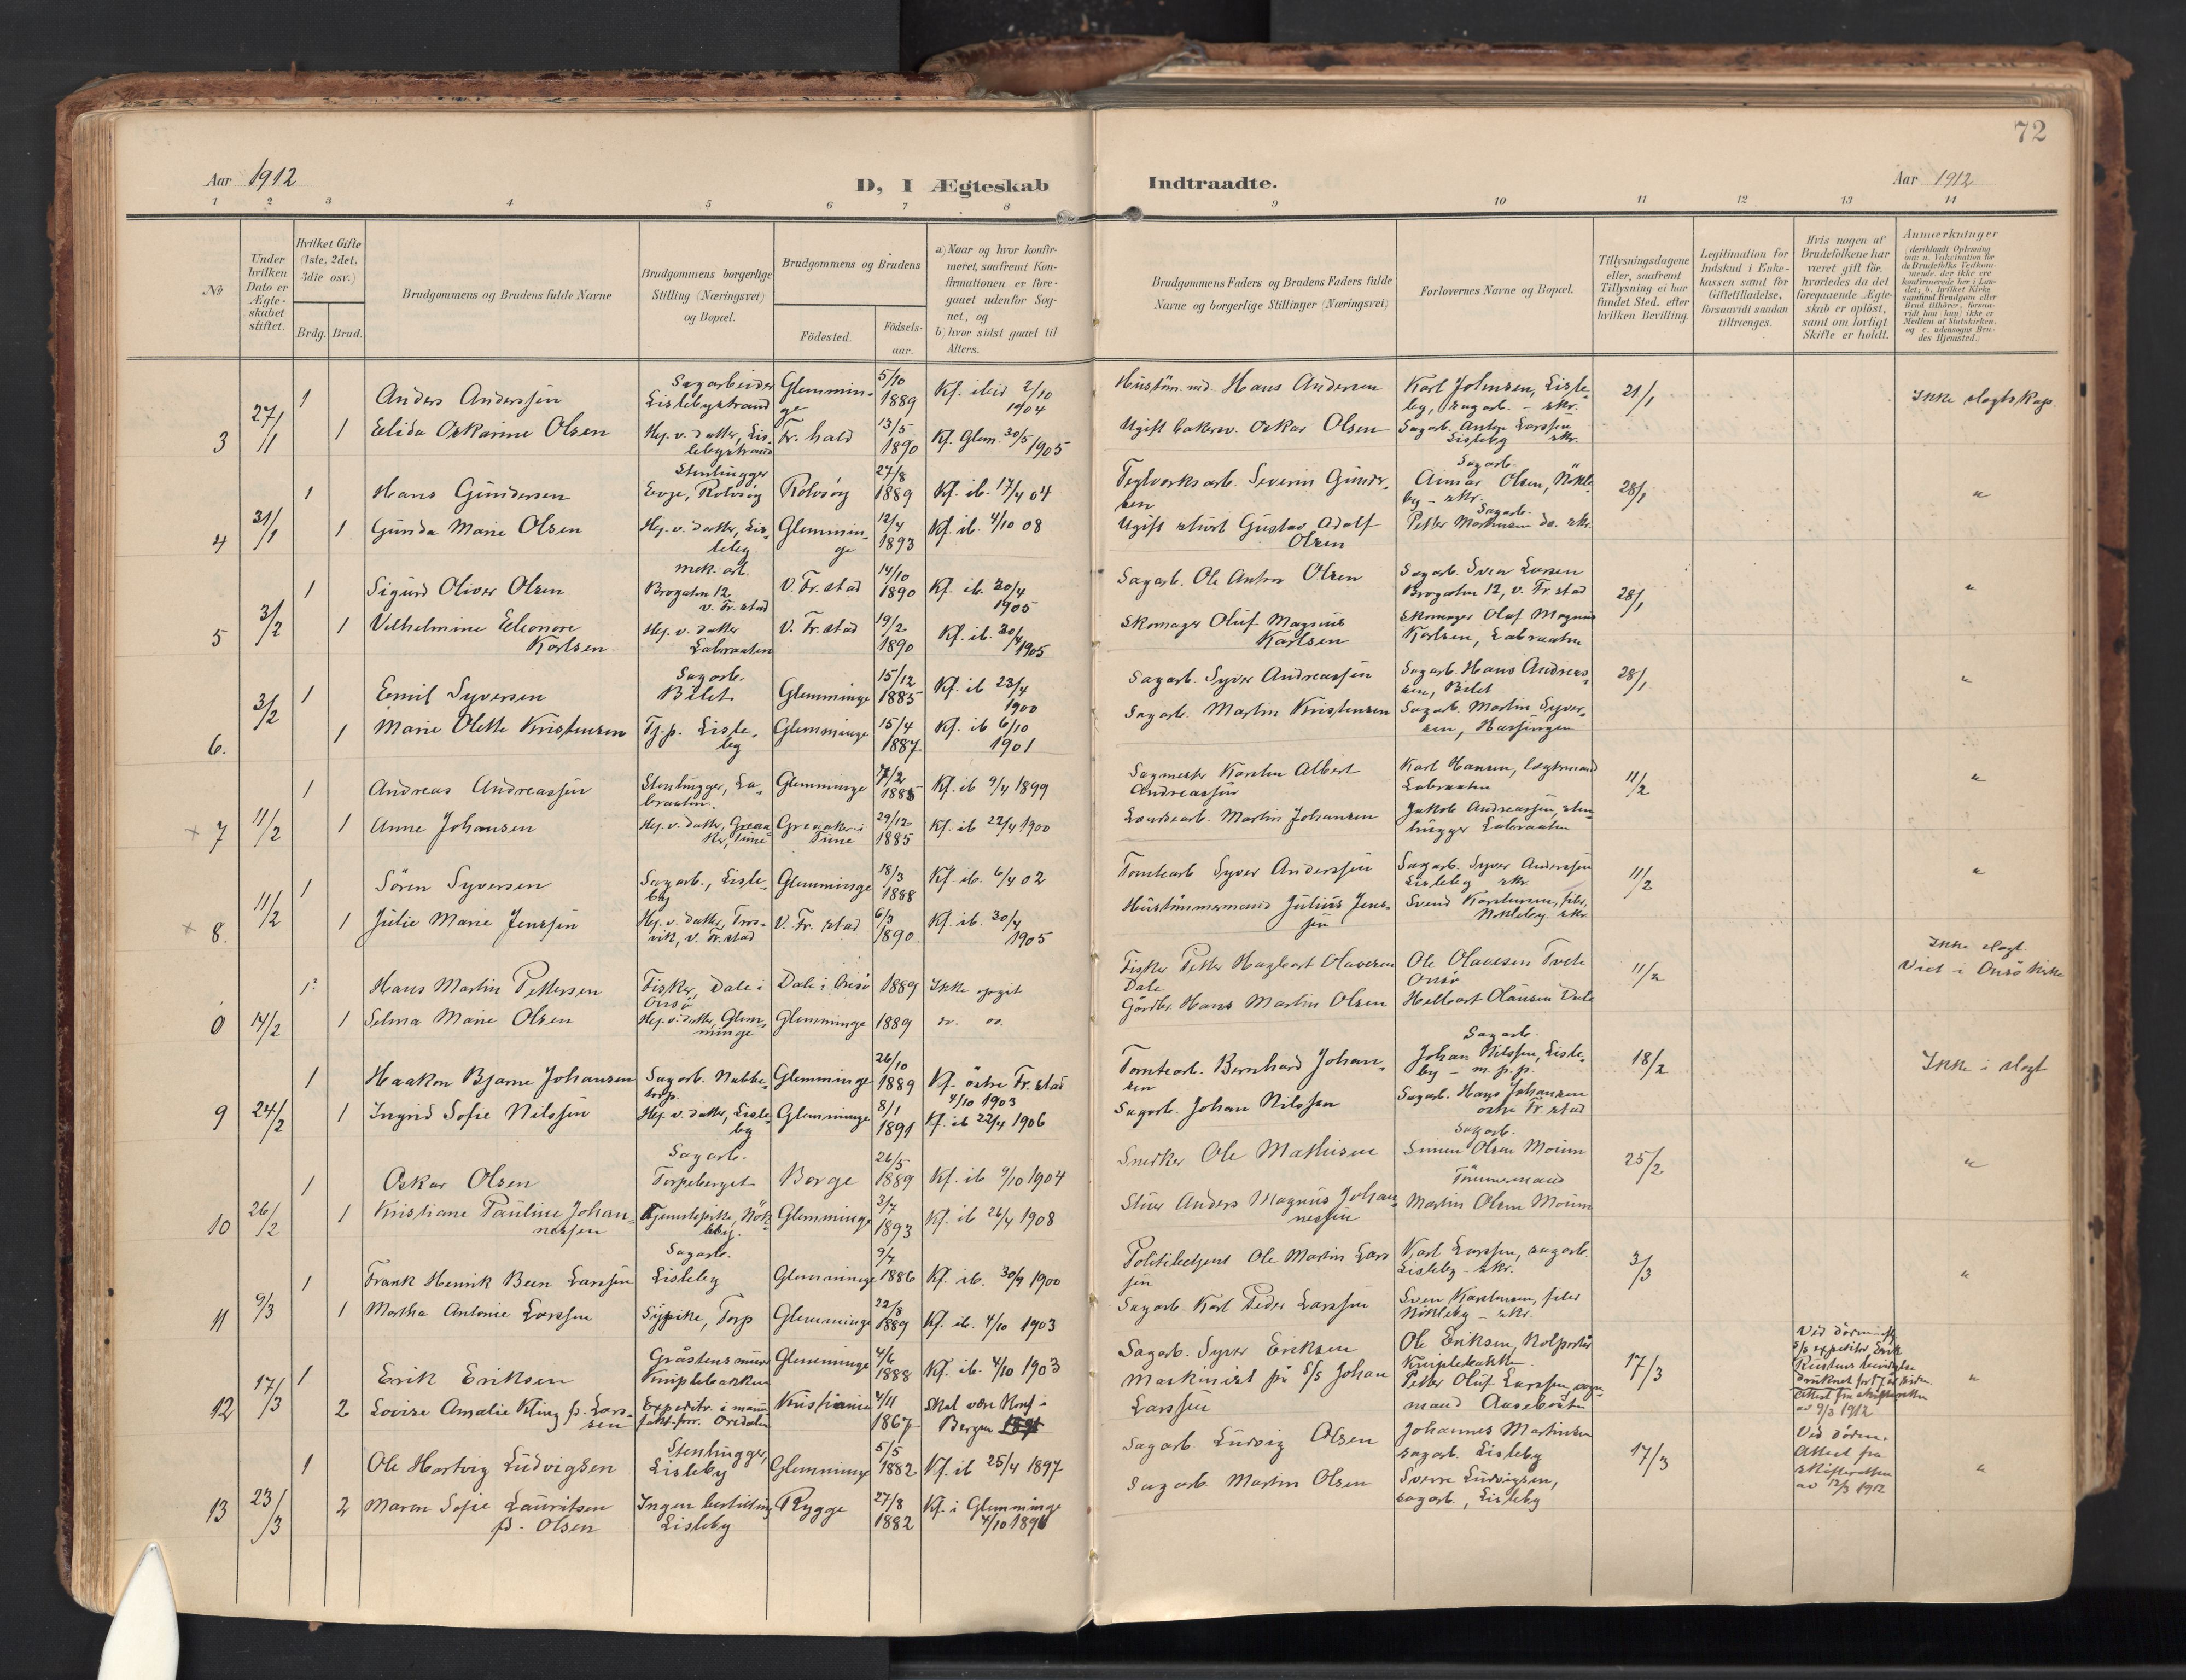 72
Aar 1912
D, I Ægteskab Indtraadte.
Aar 1912
1 2 3 4 5 6 7 8 9 10 11 12 13 14
No
Under hvilken Dato er Ægteskabet stiftet.
Hvilket Gifte (1ste, 2det, 3die osv.)
Brdg. Brud.
Brudgommens og Brudens fulde Navne
Brudgommens borgerlige Stilling (Næringsvei) og Bopæl.
Brudgommens og Brudens
Födested.
Födsels-aar.
a) Naar og hvor konfirmeret, saafremt Konfirmationen er foregaaet udenfor Sognet, og
b) hvor sidst gaaet til Alters.
Brudgommens Faders og Brudens Faders fulde Navne og borgerlige Stillinger (Næringsvei)
Forlovernes Navne og Bopæl.
Tillysningsdagene eller, saafremt Tillysning ei har fundet Sted, efter hvilken Bevilling.
Legitimation for Indskud i Enkekassen samt for Giftetilladelse, forsaavidt saadan tiltrænges.
Hvis nogen af Brudefolkene har været gift för, hvorledes da det foregaaende Ægteskab er oplöst, samt om lovligt Skifte er holdt.
Anmerkninger
3 27/1 1 Anders Anderssen Sagarbeider Lislebystrand Glemminge 5/10 1889 Kf. 2/10 1904 Hans Andersen Karl Johnsen, Lisleby, sagarb. - skr. 21/1 Ikke slegtskap.
1 Elida Oskarine Olsen Hj. v. datter, Lislebystrand Fr. hald 13/5 1890 Kf. Glem. 30/5 1905 Ugift Oskar Olsen Sagarb. Anton Larssen Lisleby skr.
4 31/1 1 Hans Gundersen Stenhugger Evje, Rolvsöy Rolvsöy 27/8 1889 Kf. ib. 17/4 04 Teglverksarb. Severin Gundersen Sagarb. Olsen, Nökleby - skr. 28/1 "
1 Gunda Marie Olsen Hj. v. datter, Lisleby. Glemminge 12/4 1893 Kf. ib. 4/10 08 Ugift Gustav Adolf Olsen Sagarb. Petter Martinsen do. skr.
5 3/2 1 Sigurd Oliver Olsen mek. arb. Brogaten 12 v. Fr.stad V. Fr.stad 14/10 1890 Kf. ib. 30/4 1905 Sagarb. Ole Anton Olsen Sagarb. Sven Larsen Brogaten 12, v. Fr.stad 28/1 "
1 Vilhelmine Eleonore Karlsen Hj. v. datter Labraaten V. Fr.stad 19/2 1890 Kf. ib. 30/4 1905 Skomager Oluf Magnus Karlsen Skomager Oluf Magnus Karlsen, Labraaten
6. 3/2 1 Emil Syversen Sagarb. Bilet Glemminge 15/12 1885 Kf. ib 23/4 1900 Sagarb. Syver Andreassen Sagarb. Hans Andreassen, Bilet 28/1 "
1 Marie Olette Kristensen Tj. p. Lisleby Glemminge 15/4 1887 Kf. ib 6/10 1901 Sagarb. Martin Kristensen Sagarb. Martin Syversen,
7 11/2 1 Andreas Andreassen Stenhugger, Labraaten. Glemminge 7/2 1885 Kf. ib 9/4 1899 Sagmester Karsten Albert Andreassen Karl Hansen, Labraaten 11/2 "
1 Anne Johansen Hj. v. datter, Greaaker, Tune Greaaker i Tune 29/12 1885 Kf. ib 22/4 1900 Martin Johansen Jakob Andreassen, stenhugger Labraaten
8. 11/2 1 Sören Syversen Sagarb., Lisleby Glemminge 18/3 1888 Kf. ib. 6/4 02 Tomtearb. Syver Anderssen Sagarb. Syver Anderssen Lisleby skr. 11/2 "
1 Julie Marie Jenssen Hj. v. datter, Trosvik, v. Fr.stad V. Fr.stad 6/3 1890. Kf. ib. 30/4 1905 Hustömmermand Julius Jenssen Svend Karstensen, Nökleby skr.
0 14/2 1 Hans Martin Pettersen Fisker, Dale i Onsö Dale i Onsö 1889 Ikke opgit Fisker Petter Hagbart Olavesen Dale Ole Olavesen Tvete Onsö 11/2 Ikke slegt. Viet i Onsö kirke
1 Selma Marie Olsen Hj. v. datter, Glemminge Glemminge 1889 do. do. Hans Martin Olsen Helbart Olausen Dale
9 24/2 1 Haakon Bjarne Johansen Sagarb. Nabbetorp Glemminge 26/10 1889 Kf. östre Fr.stad 4/10 1903 Tomtearb. Bernhard Johansen Sagarb. Johan Nilssen, Lisleby - m. p. p. 18/2 Ikke i slegt
1 Ingrid Sofie Nilssen Hj. v. datter, Lisleby Glemminge 8/1 1891 Kf. ib 22/4 1906 Sagarb. Johan Nilssen Sagarb. Hans Johansen östre Fr.stad
10 26/2 1 Oskar Olsen Sagarb. Torpeberget Borge 26/5 1889 Kf. ib 9/10 1904 Snedker Ole Mathisen Sagarb. Simen Olsen Moum Tömmermand 25/2 "
1 Kristiane Pauline Johannessen Tjenestepike, Nökleby. Glemminge 3/7 1893 Kf. ib 26/4 1908 Stuer Anders Magnus Johannessen Martin Olsen Moum
11 9/3 1 Frank Henrik Been Larssen Sagarb. Lisleby Glemminge 9/7 1886 Kf. ib. 30/9 1900 Politibetjent Ole Martin Larssen Karl Larssen, sagarb. Lisleby - skr. 3/3 "
1 Martha Antonie Larssen Sypike, Torp Glemminge 22/8 1889 Kf. ib. 4/10 1903 Sagarb. Karl Peder Larssen Sven Karstensen, Nökleby - skr.
12 17/3 1 Erik Eriksen Gråstensmurer Kniplebakken Glemminge 4/6 1888 Kf. ib. 4/10 1903 Sagarb. Syver Eriksen Ole Eriksen, Kolportör Kniplebakken 17/3 "
2 Lovise Amalie Kling f. Larssen Expeditr. i Kristiania 4/11 1867 Skal være Konf. i Bergen Maskinist på S/S Johan Larssen Petter Oluf Larssen,
Attest fra skifteretten av 9/3 1912
13 23/3 1 Ole Hartvig Ludvigsen Stenhugger, Lisleby Glemminge 5/5 1882 Kf. ib 25/4 1897 Sagarb. Ludvig Olsen Johannes Martinsen sagarb. Lisleby 17/3 Attest fra skifteretten av 12/3 1912 "
2 Maren Sofie Lauritsen f. Olsen Ingen bestilling Lisleby Rygge 27/8 1882 Kf. i Glemminge 4/10 189 Sagarb. Martin Olsen Sverre Ludvigsen, sagarb., Lisleby